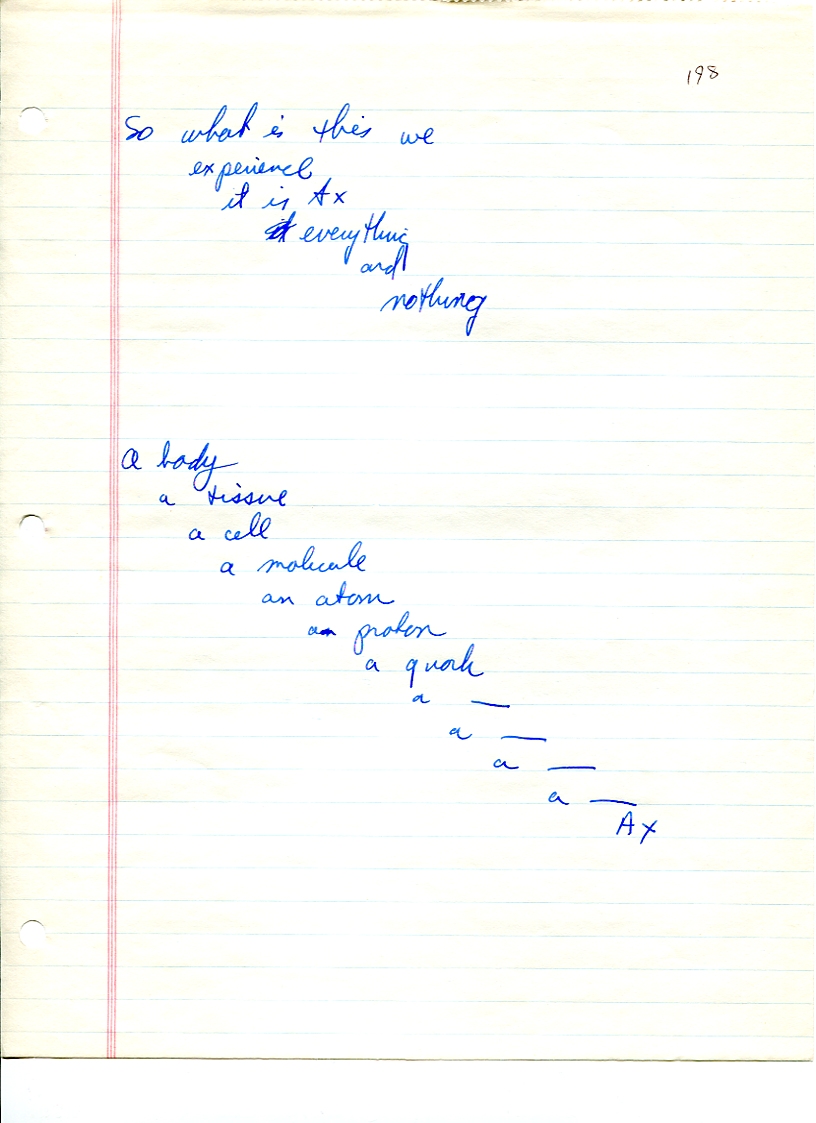 198
So what is this we
experience
it is Ax
everything
and
nothing
a body
a tissue
a cell
a molecule
an atom
a proton
a quark
a —
a —
a —
a —
Ax